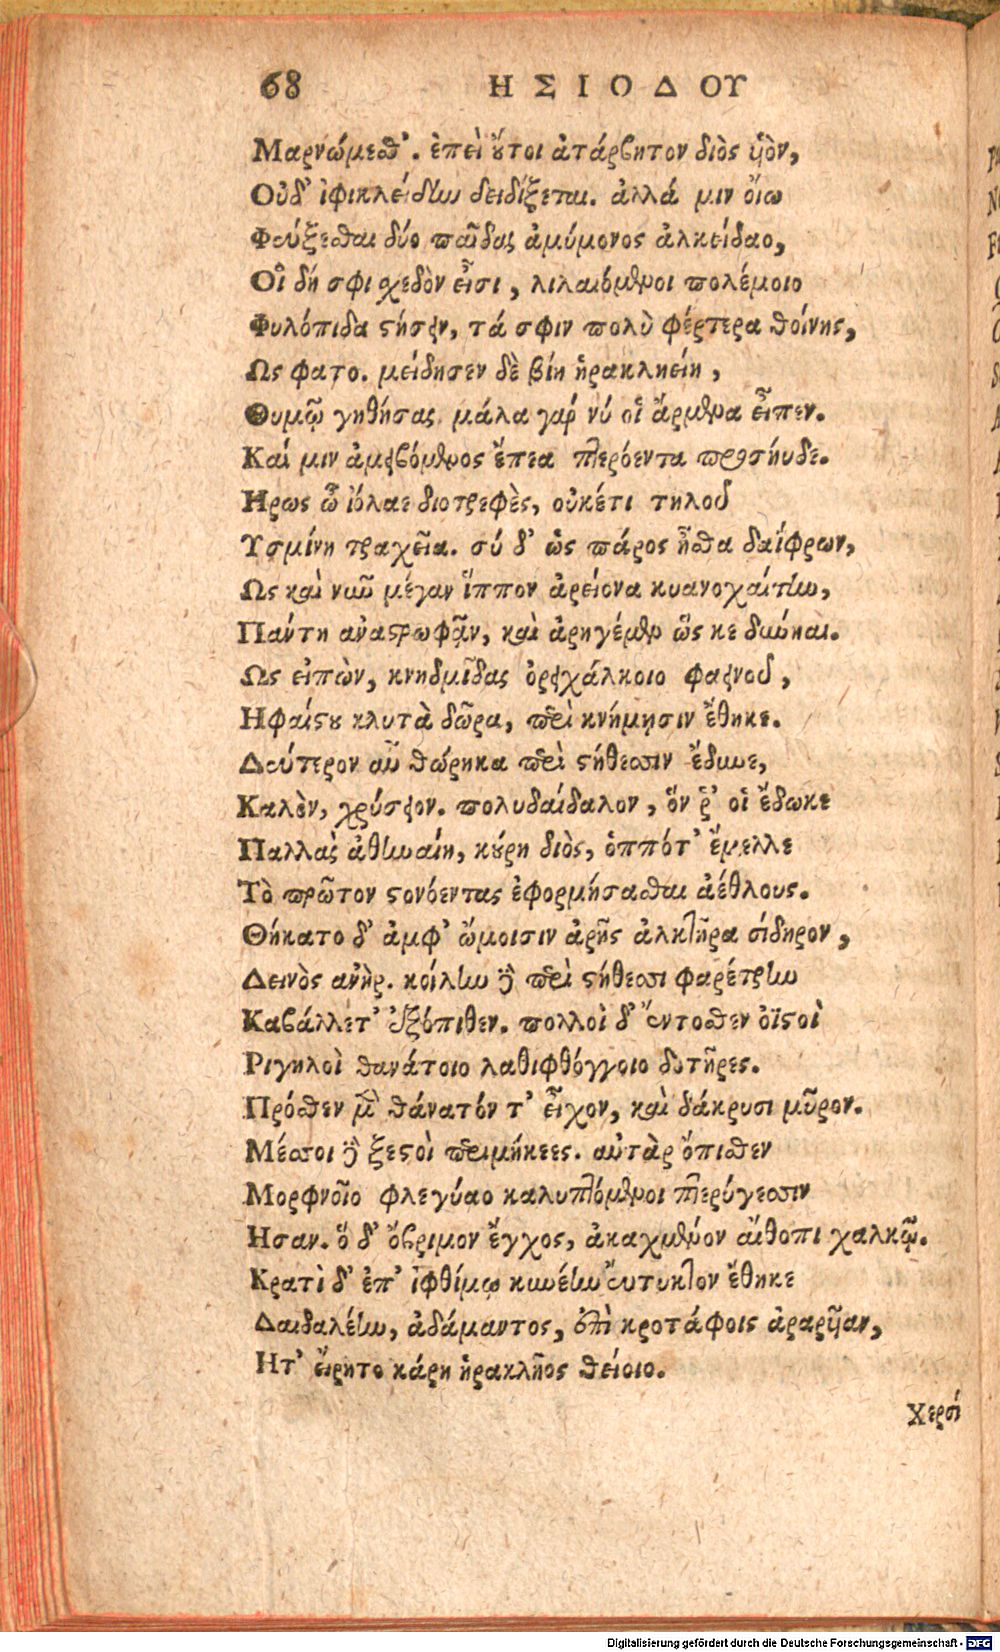 68 ΗΣΙΟΔΟΥ
Μαρνώμεσθ'. ἐπεὶ οὔτοι ἀτάρβητον διὸς υἱὸν,
Οὐδ' ἰφικλείδην δειδίξεται. ἀλλά μιν ὀΐω
Φεύξεσθαι δύο παῖδας ἀμύμονος ἀλκείδαο,
Οἳ δή σφι σχεδὸν εἶσι, λιλαιόμενοι πολέμοιο
Φυλόπιδα στήσειν, τά σφιν πολὺ φέρτερα θοίνης,
Ως φατο. μείδησεν δὲ βίη ἡρακληείη,
Θυμῷ γηθήσας. μάλα γάρ νύ οἱ ἄρμενα εἶπεν.
Καί μιν ἀμειβόμενος ἔπεα πτερόεντα προσηύδα.
Ηρως ὦ ἰόλαε διοτρεφὲς, οὐκέτι τηλοῦ
Υσμίνη τραχεῖα. σύ δ' ὡς πάρος ἦσθα δαΐφρων,
Ως καὶ νῦν μέγαν ἵππον ἀρείονα κυανοχαίτην,
Πάντη ἀναστρωφᾷν, καὶ ἀρηγέμεν ὥς κε δύνηαι.
Ως εἰπὼν, κνημῖδας ὀρειχάλκοιο φαεινοῦ,
Ηφαίστου κλυτὰ δῶρα, περὶ κνήμῃσιν ἔθηκε.
Δεύτερον αὖ θώρηκα περὶ στήθεσσιν ἔδυνε,
Καλὸν, χρύσειον. πολυδαίδαλον, ὅν ῥ' οἱ ἔδωκε
Παλλὰς ἀθηναίη, κούρη διὸς, ὁππότ' ἔμελλε
Τὸ πρῶτον στονόεντας ἐφορμήσασθαι ἀέθλους.
Θήκατο δ' ἀμφ' ὤμοισιν ἀρῆς ἀλκτῆρα σίδηρον,
Δεινὸς ἀνήρ. κοίλην δὲ περὶ στήθεσσι φαρέτρην
Καβάλλετ' ἐξόπιθεν. πολλοὶ δ' ἔντοσθεν ὀϊστοὶ
Ριγηλοὶ θανάτοιο λαθιφθόγγοιο δοτῆρες.
Πρόσθεν μὲν θάνατόν τ' εἶχον, καὶ δάκρυσι μῦρον.
Μέσσοι δὲ ξεστοὶ περιμήκεες. αὐτὰρ ὄπισθεν
Μορφνοῖο φλεγύαο καλυπτόμενοι πτερύγεσσιν
Ησαν. ὅ δ' ὄβριμον ἔγχος, ἀκαχμένον αἴθοπι χαλκῷ.
Κρατὶ δ' ἐπ' ἰφθίμῳ κυνέην εὔτυκτον ἔθηκε
Δαιδαλέην, ἀδάμαντος, ἐπὶ κροτάφοις ἀραρυῖαν,
Ητ' εἴρητο κάρη ἡρακλῆος θείοιο.
Χερσί
Digitalisierung gefördert durch die Deutsche Forschungsgemeinschaft - DFG